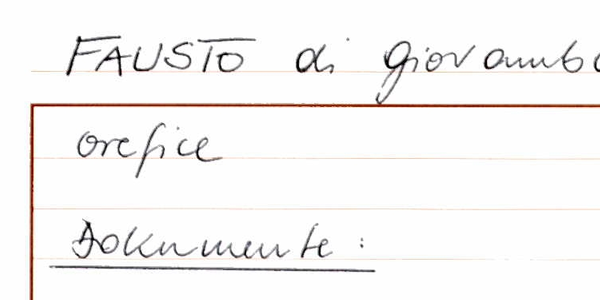 FAUSTO di Giovamb
orefice
Dokumente: